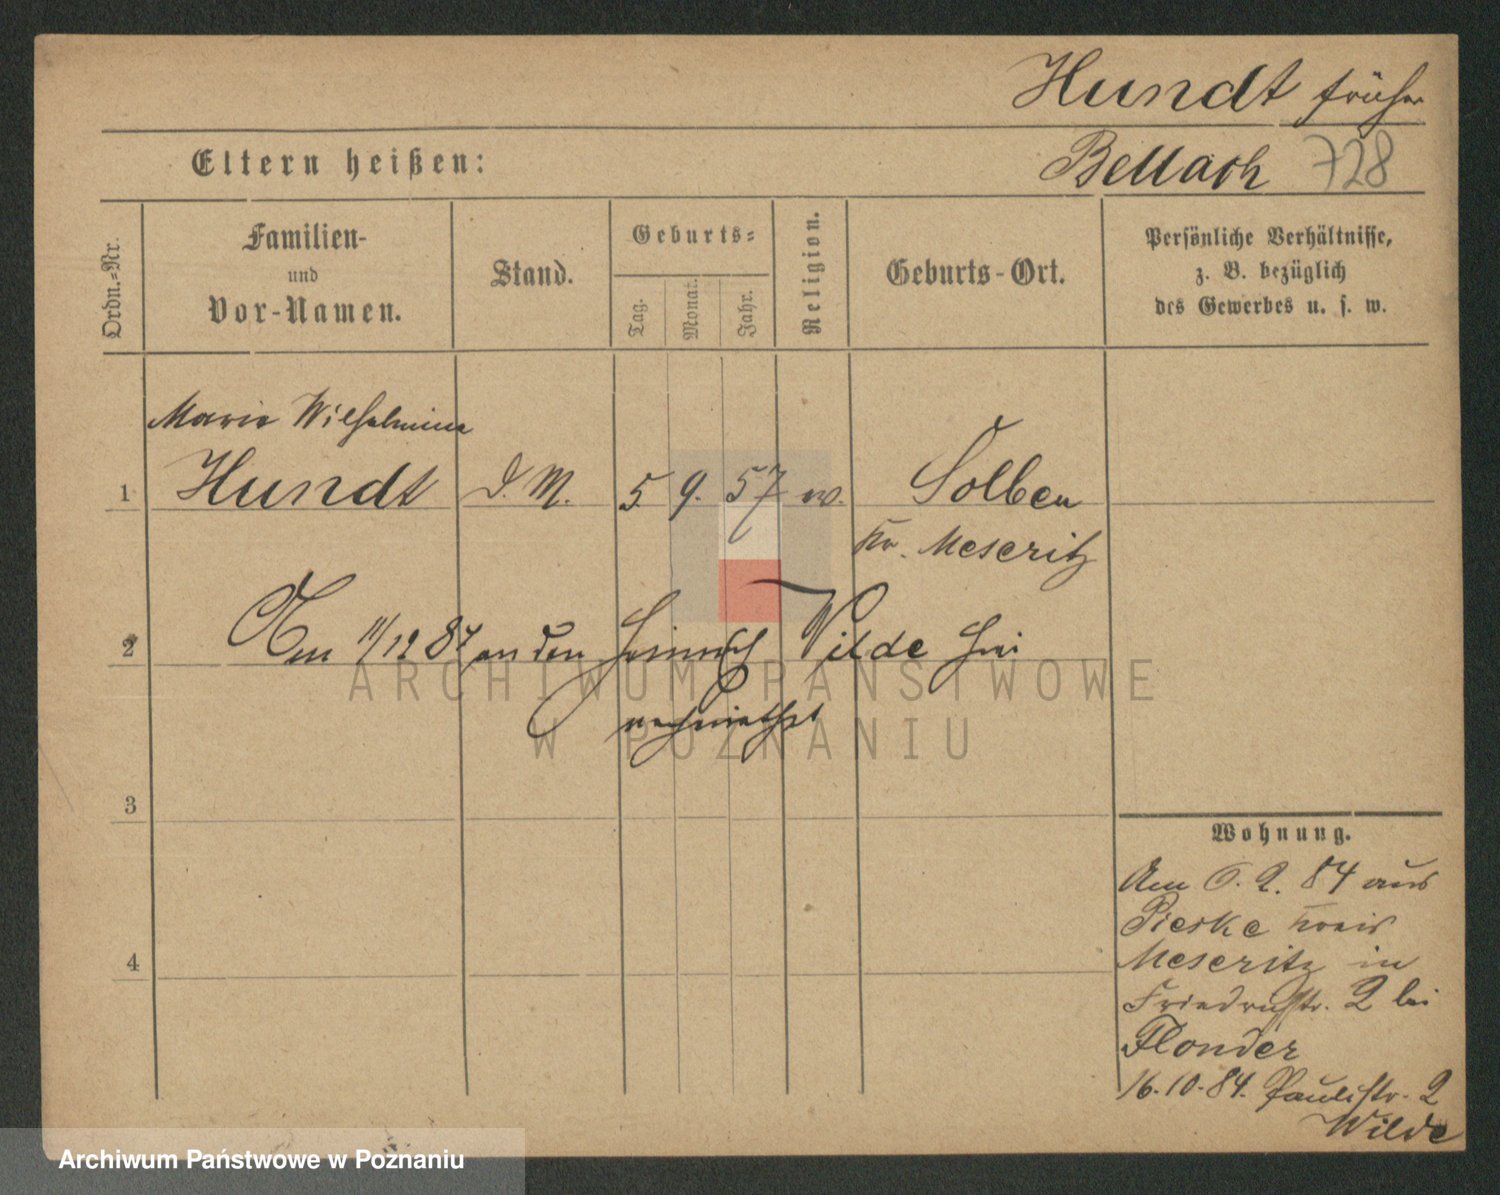 Hundt früher
Eltern heißen:
Bellach 728
Ordn.-Nr.
Familien-
und
Vor-Namen.
Stand.
Geburts-
Tag.
Monat.
Jahr.
Religion.
Geburts-Ort.
Persönliche Verhältnisse,
z. B. bezüglich
des Gewerbes u. s. w.
Marie Wilhelmine
1 Hundt D. M. 5 9. 57 ev. Solben
Kr. Meseritz
2 Am 11/12 87 an den Heinrich Wilde hier
verheirathet
ARCHIWUM PAŃSTWOWE
W POZNANIU
3
4
Wohnung.
Am 6. 2. 84 aus
Pieske Kreis
Meseritz in
Friedrichstr. 2 bei
Flonder
16.10.84. Paulistr. 2
Wilde
Archiwum Państwowe w Poznaniu